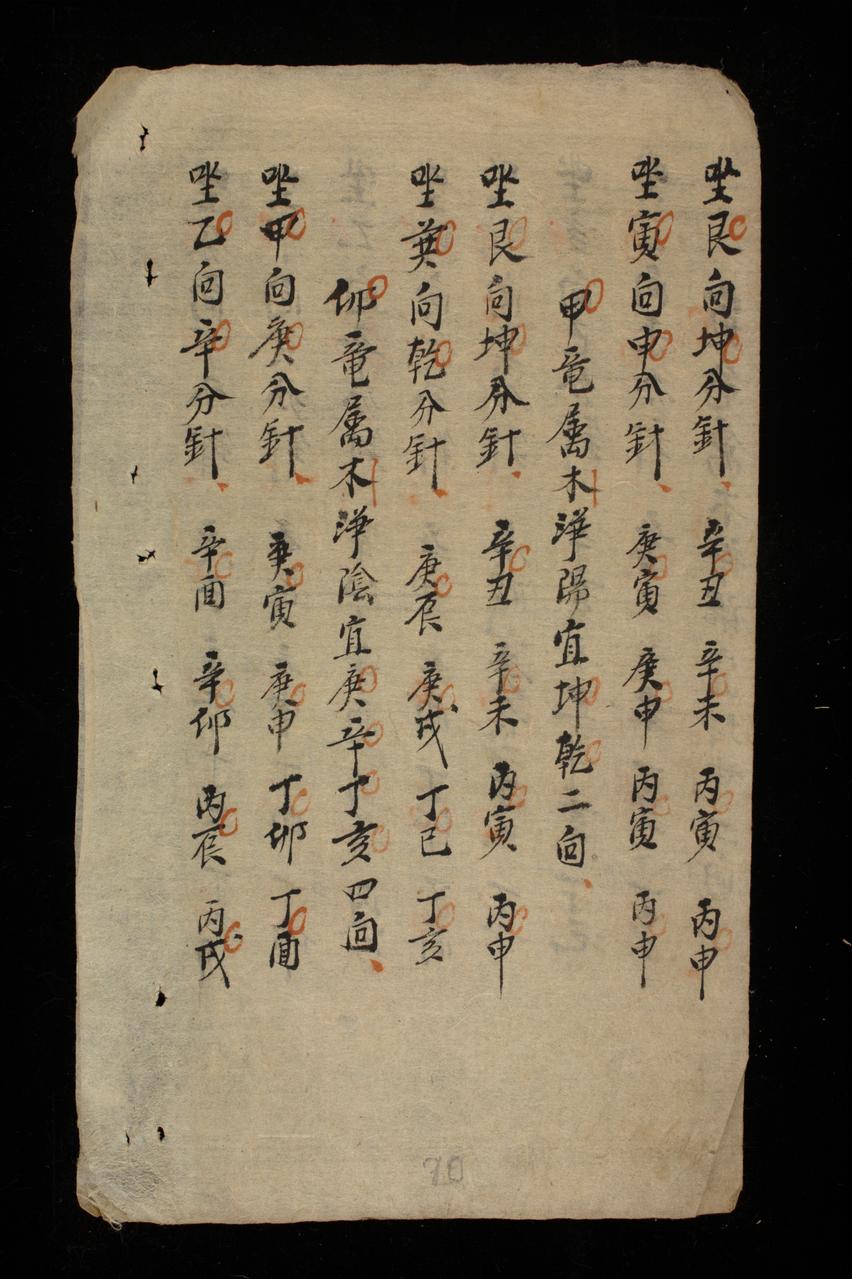 坐艮向坤分針 辛丑 辛未 丙寅 丙申
坐寅向申分針 庚寅 庚申 丙寅 丙申
甲竜属木浄陽宜坤乾二向
坐艮向坤分針 辛丑 辛未 丙寅 丙申
坐巽向乾分針 庚辰 庚戌 丁巳 丁亥
卯竜属木浄陰宜庚辛丁亥四向
坐甲向庚分針 庚寅 庚申 丁卯 丁酉
坐乙向辛分針 辛酉 辛卯 丙辰 丙戌
70